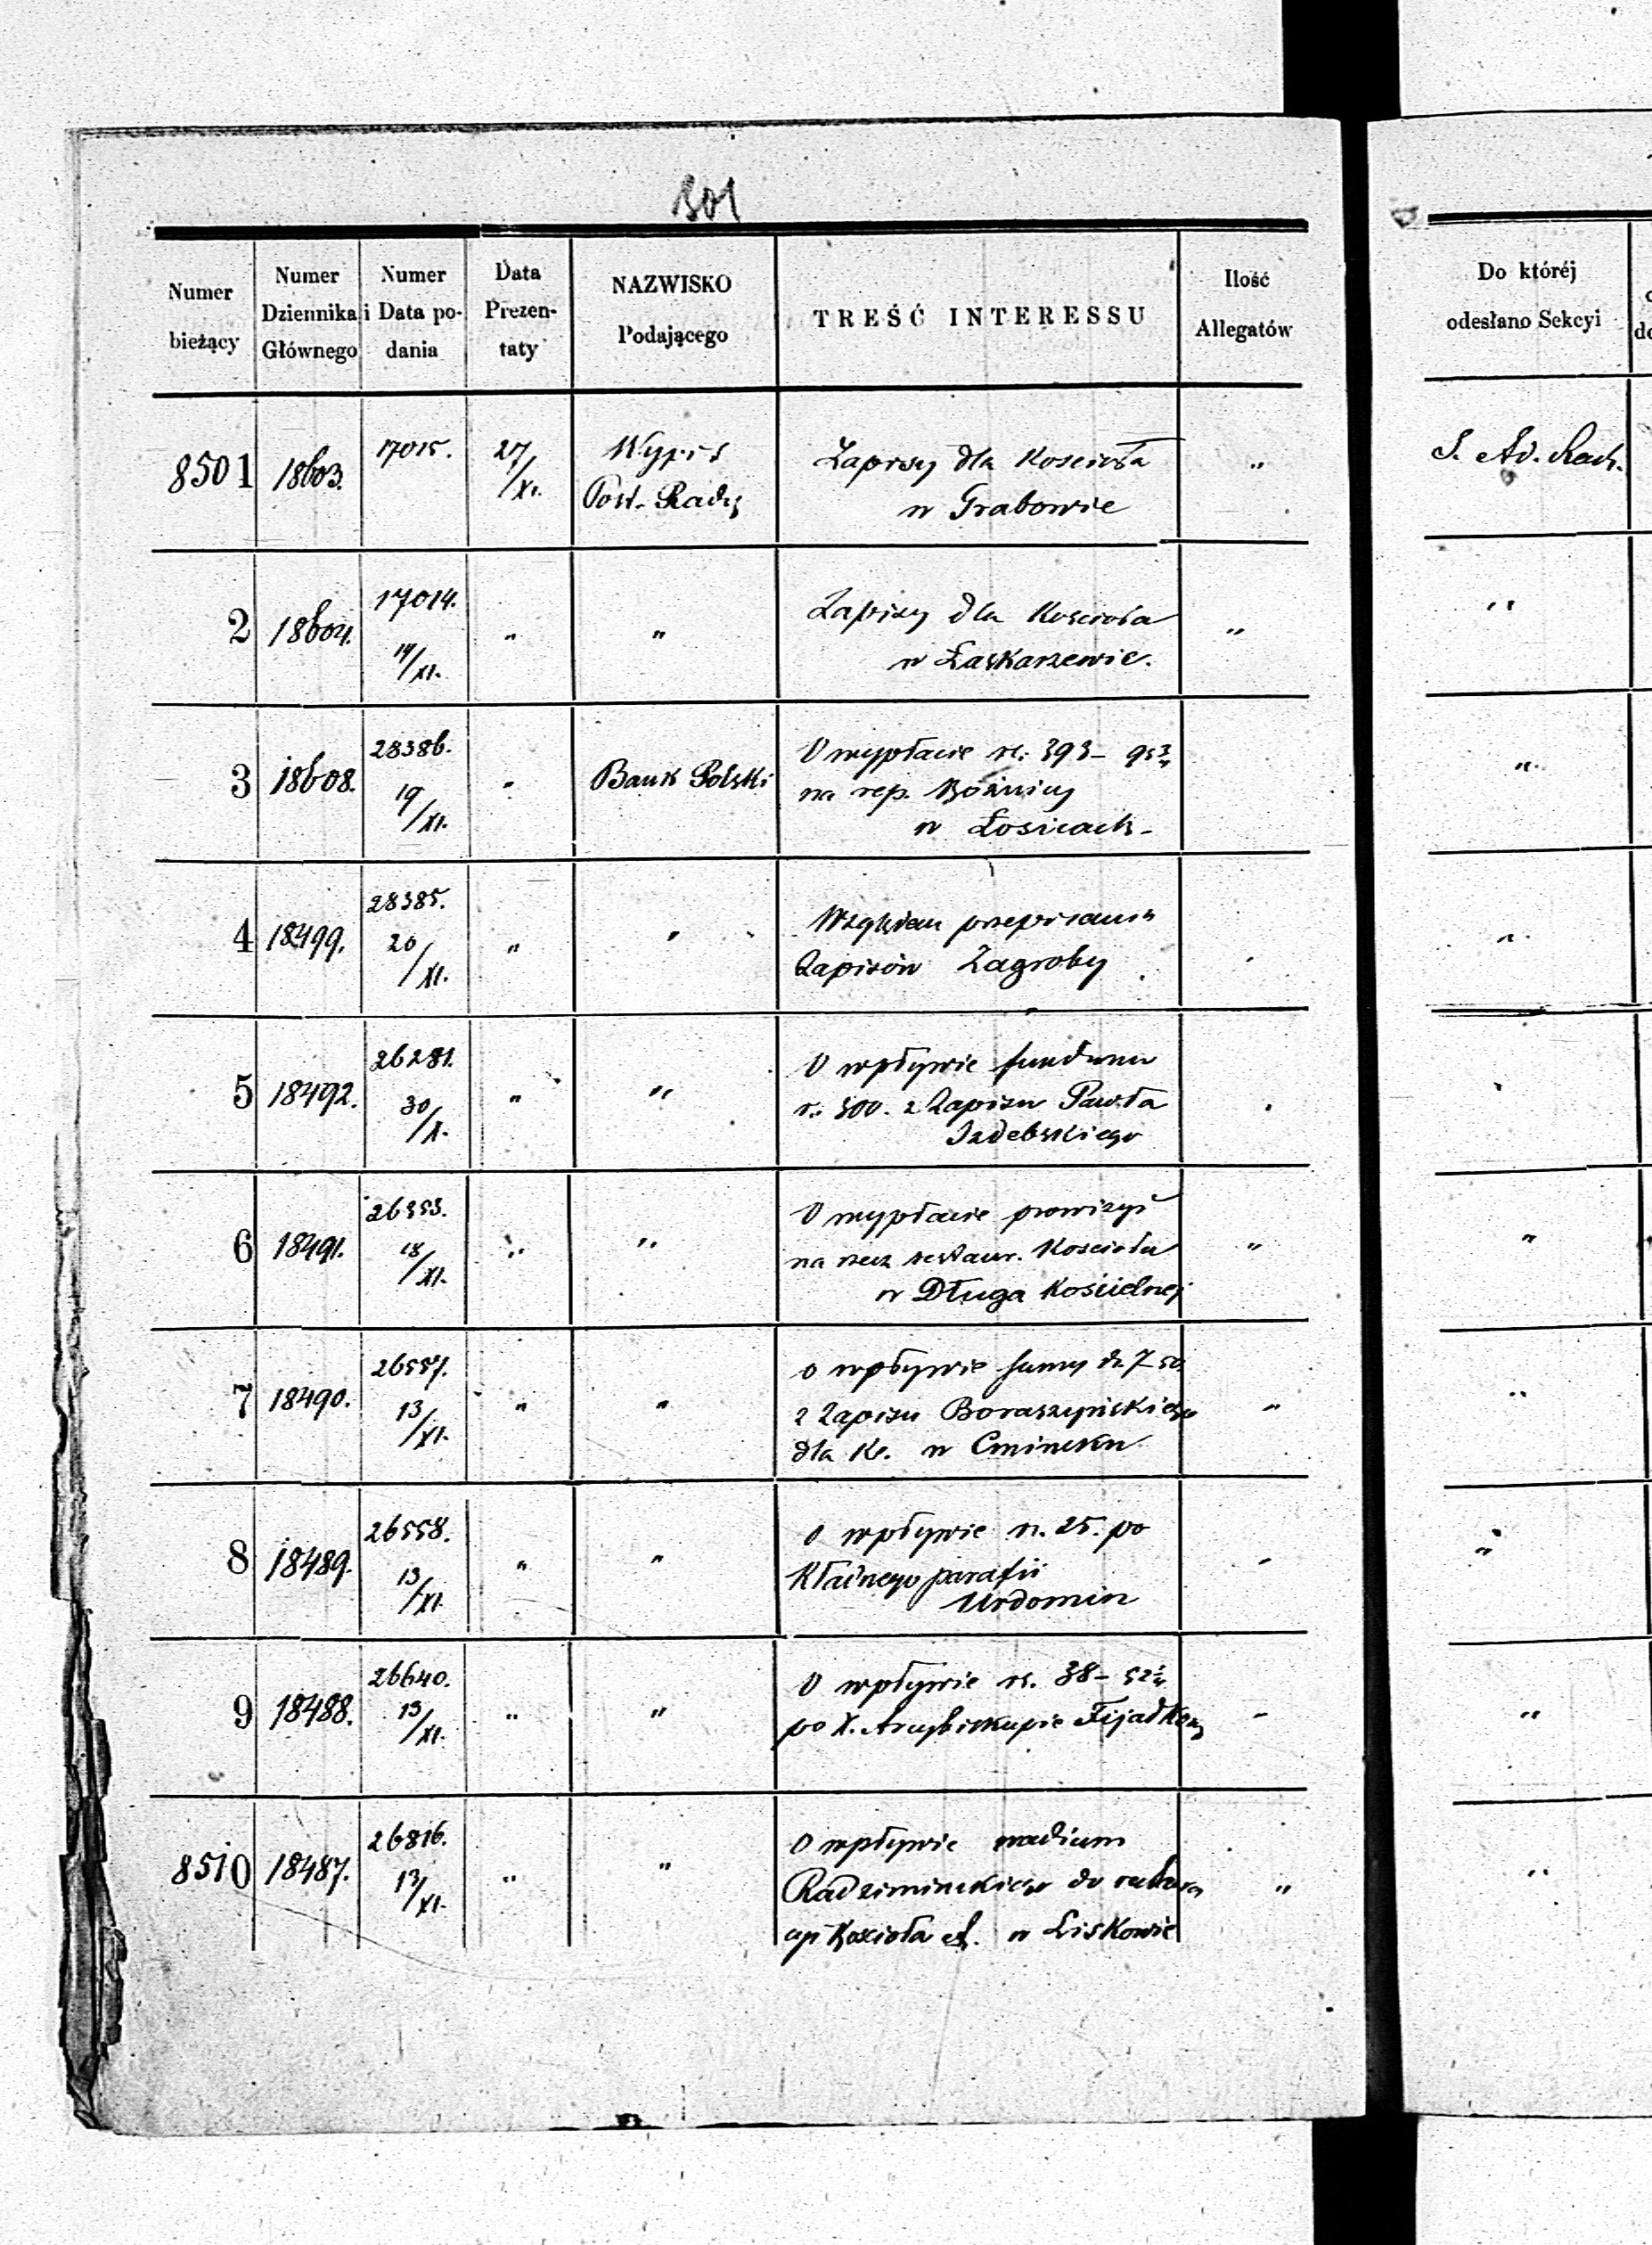 301
Numer bieżący
Numer Dziennika Głównego
Numer i Data podania
Data Prezentaty
NAZWISKO Podającego
TREŚĆ INTERESSU
Ilość Allegatów
Do któréj odesłano Sekcyi
8501 18603. 17015. 27/XI. Wypis Post. Rady
Zapisy dla Kościoła
w Grabowie
" S. Ad. Rach.
2 18604. 17014. 14/XI. " "
Zapisy dla Kościoła
w Łaskarzewie.
" "
3 18608. 28386. 19/XI. " Bank Polski
O wypłacie rs. 393-
na rep. Bóżnicy
w Łosicach-
"
4 18499. 28385. 20/XI. " "
Względem przepisania
Zapisów Zagroby
" "
5 18492. 26281. 30/X. " "
O wpływie funduszu
r. 300. z Zapisu Pawła
Izdebskiego
6 18491. 26353. 18/XI. " "
O wypłacie prowizyi
na rzecz restaur. Kościoła
w Długa Kościelnej
" "
7 18490. 26557. 13/XI. " "
o wpływie sumy 7-50.
z Zapisu
dla w Cmińsku
" "
8 18489. 26558. 13/XI. " "
o wpływie rs. 25. po
parafii
Urdomin
" "
9 18488. 26640. 13/XI. " "
O wpływie rs. 38-
po X. Arcybiskupie Fijałkow
" "
8510 18487. 26816. 13/XI. " "
O wpływie vadium
do
Kościoła w Liskowie
" "